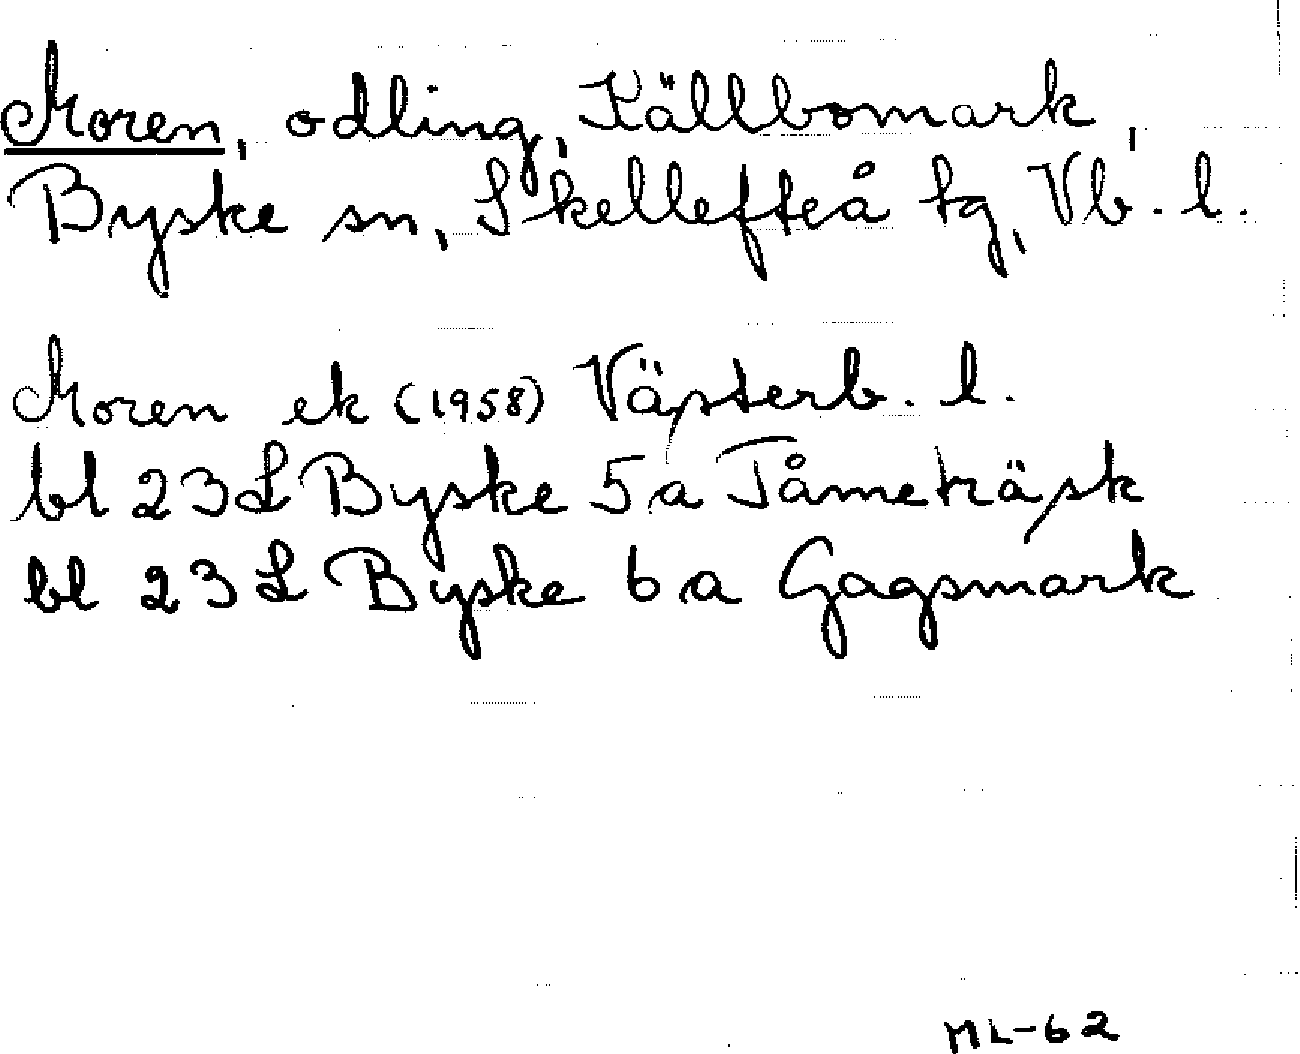 Moren, odling, Källbomark,
Byske sn, Skellefteå tg, Vb. l.
Moren ek (1958) Västerb. l.
bl 23L Byske 5a Tåmeträsk
bl 23L Byske 6a Gagsmark
ML-62